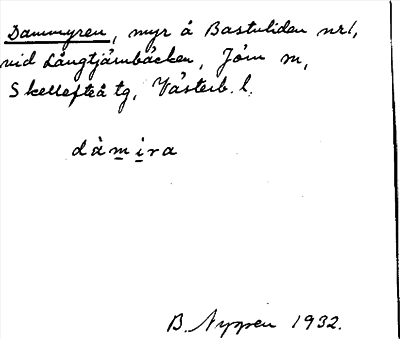 Dammyren, myr å Bastuliden nr 1,
vid Långtjärnbäcken, Jörn sn,
Skellefteå tg, Västerb. l.
dàmira
B. Nygren 1932.